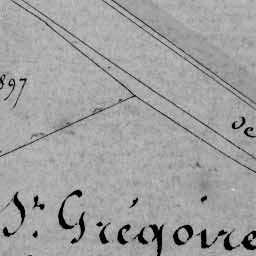 897
de
St. Grégoire